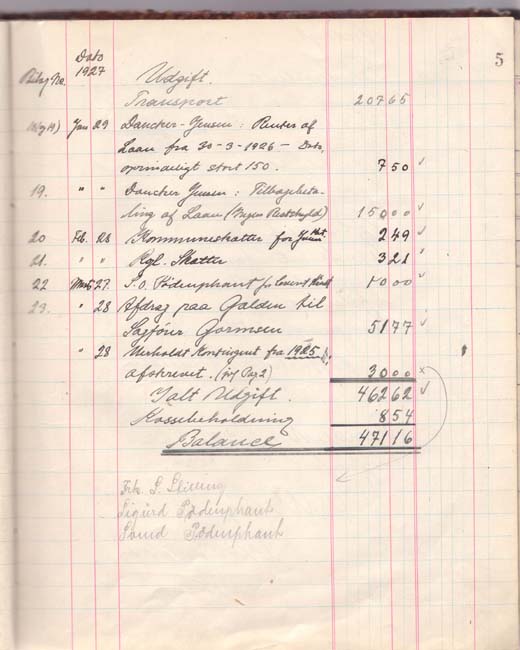 5
Dato
Bilag No. 1927 Udgift.
Transport 207 65
19) Jan 29 Dancker-Jensen: Renter af
Laan fra 30-3-1926 - Dato,
oprindeligt stort 150. 7 50
19. " " Dancker Jensen: Tilbagebeta-
ling af Laan (Restskyld) 150 00
20 Feb. 28 Kommuneskatter for 2 49
21. " " Kgl. Skatter 3 21
22 Marts 27. S.O. Pödenphant 10 00
23. " 28 Afdrag paa Gælden til
Sagfører Gormsen 51 77
" 28 Uerholdt Kontingent fra 1925
afskrevet. (Pag 2) 30 00 x
Ialt Udgift. 462 62
Kassebeholdning 8 54
Balance 471 16
Frk. S. Skilling
Sigurd Pödenphant
Svend Pödenphant